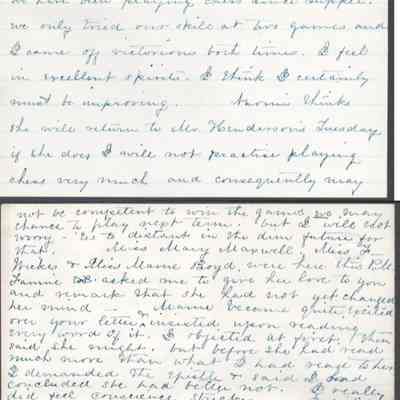 we have been playing chess since supper.
we only tried our skill at two games and
I came off victorious both times. I feel
in excellent spirits. I think I certainly
must be improving. Naomi thinks
she will return to Mr. Henderson's Tuesday
if she does I will not practise playing
chess very much and consequently may
not be competent to win the games we may
chance to play next term. but I will not
worry - 'tis to distant in the dim future for
that. Miss Mary Maxwell, Miss F.
& Miss Mame Boyd, were here this P.M.
Fannie asked me to give her love to you
and remark that she had not yet changed
her mind - Mame became quite excited
over your letter & insisted upon reading
every word of it. I objected at first, then
said she might. but before she had read
much more than what I had read to her
I demanded the epistle & said I had
concluded she had better not. I really
did feel conscience